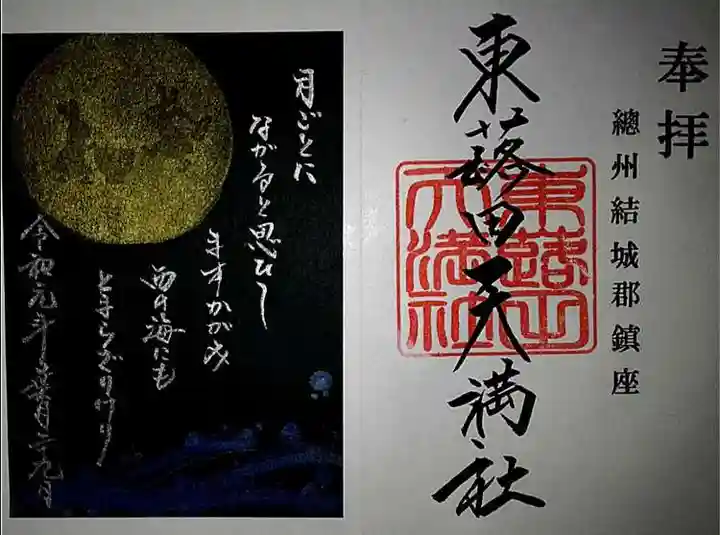 奉拝
總州結城郡鎮座
東蕗田天満社
東蕗田
天満社
月ごとに
ながると思ひし
ますかがみ
西の海にも
とまらざりけり
令和元年葉月二九日